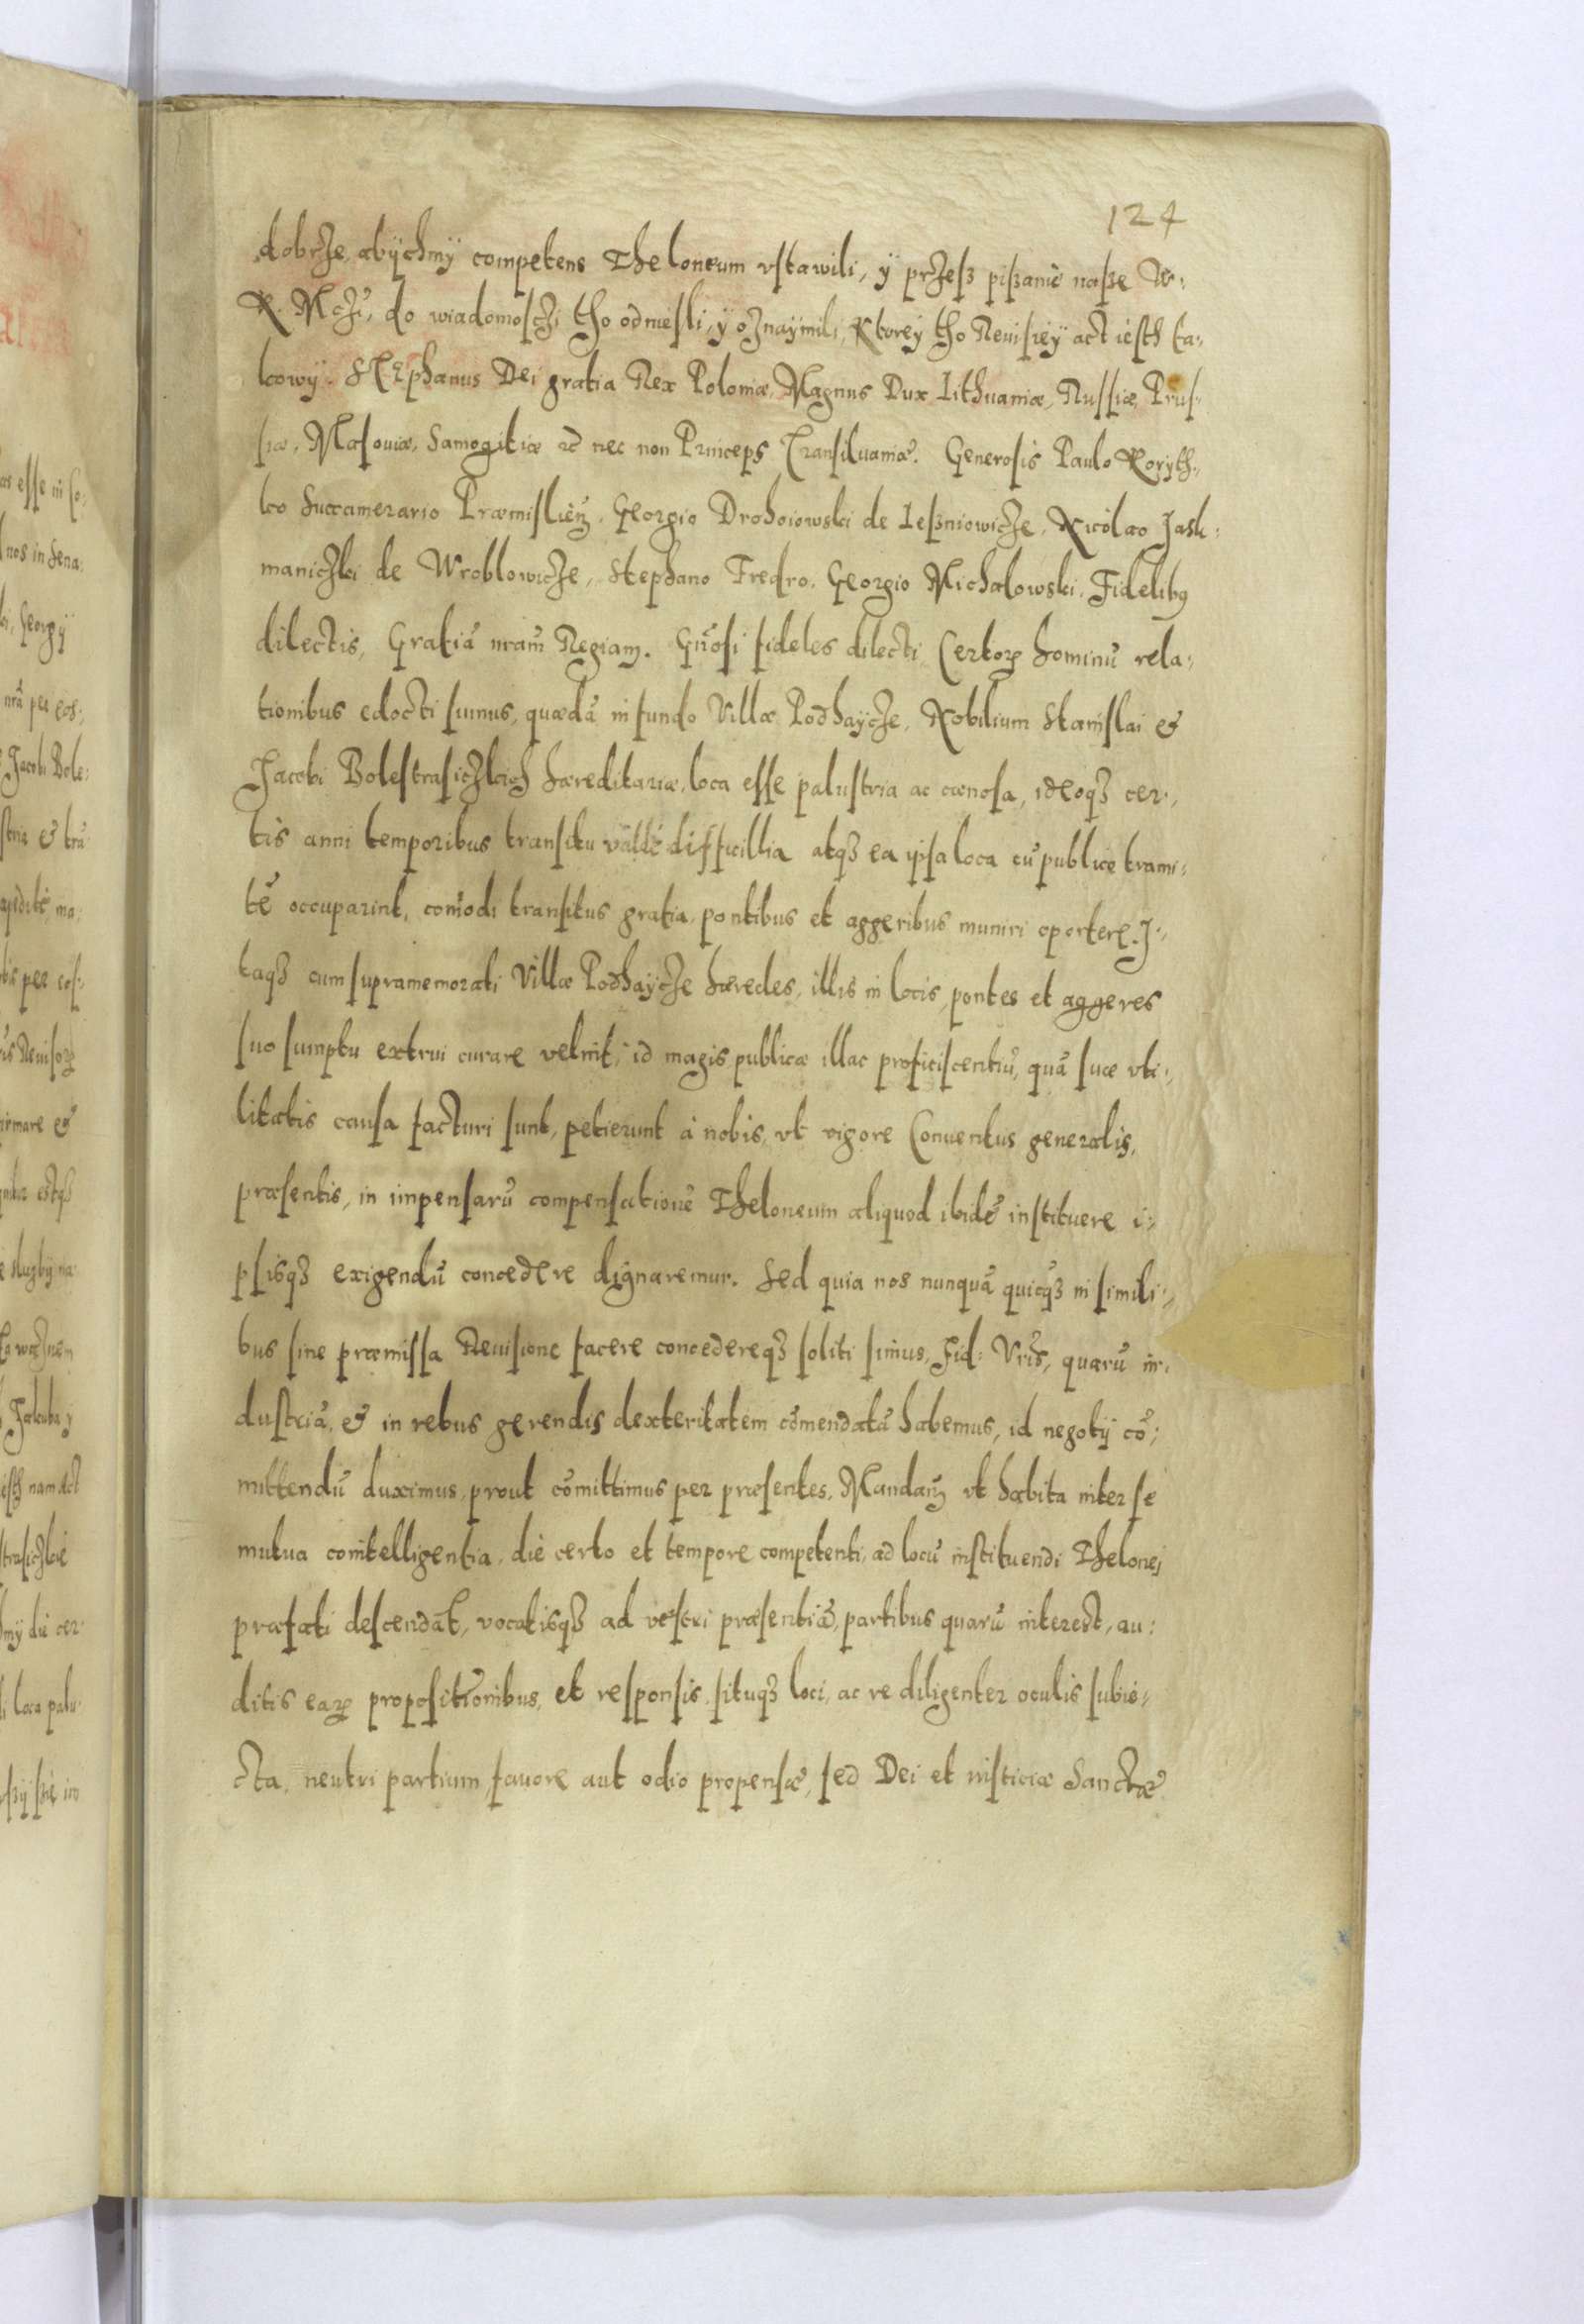 124
dobrze, abÿchmÿ competens Theloneum vstawili, ÿ przesz piszanié nasze W:
K. Mczi, do wiadomosczi tho odniesli, ÿ oznaÿmili, Ktoreÿ tho Reuisieÿ act iesth ta-
kowÿ. Stephanus Dei gratia Rex Poloniæ, Magnus Dux Lithuaniæ, Russiæ, Prus-
siæ, Masouiæ, Samogitiæ ec nec non Princeps Transiluaniæ. Generosis Paulo Koryth-
ko Succamerario Præmislieñ, Georgio Drohoiowski de Leszniowicze, Nicolao Jask-
maniczki de Wroblowicze, Stephano Fredro, Georgio Michalowski, Fidelibꝰ
dilectis, Gratiã nrãm Regiam. Gñosi fideles dilecti Certoꝝ hominũ rela-
tionibus edocti sumus, quædã in fundo Villæ Podhaÿcze, Nobilium Stanislai &
Jacobi Bolestrasiczkich hæreditariæ, loca esse palustria ac cœnosa, ideoqꝫ cer-
tis anni temporibus transitu valde difficillia atqꝫ ea ipsa loca cũ publico trami-
tẽ occuparint, com̃odi transitus gratia, pontibus et aggeribus muniri oportere. I-
taqꝫ cum supramemorati Villæ Podhaÿcze hæredes, illis in locis, pontes et aggeres
suo sumptu extrui curare velint, id magis publicæ illac proficiscentiũ, quã suæ vti-
litatis causa facturi sunt, petierunt à nobis, vt vigore Conuentus generalis,
præsentis, in impensarũ compensationẽ Theloneum aliquod ibidẽ instituere i-
psisqꝫ exigendũ concedere dignaremur. Sed quia nos nunquã quicqꝫ in simili-
bus sine præmissa Reuisione facere concedereqꝫ soliti simus, Fid: Vris, quarũ in-
dustriã, & in rebus gerendis dexteritatem cõmendatã habemus, id negotÿ cõ-
mittendũ duximus, prout cõmittimus per præsentes, Mandam̃ vt habita inter se
mutua conitelligentia, die certo et tempore competenti, ad locũ instituendi Thelonei
præfati descendãt, vocatisqꝫ ad vestri præsentiã, partibus quarũ interest, au-
ditis eaꝝ propositionibus, et responsis, situqꝫ loci, ac re diligenter oculis subie-
cta, neutri partium, fauore aut odio propensæ, sed Dei et iusticiæ Sanctæ